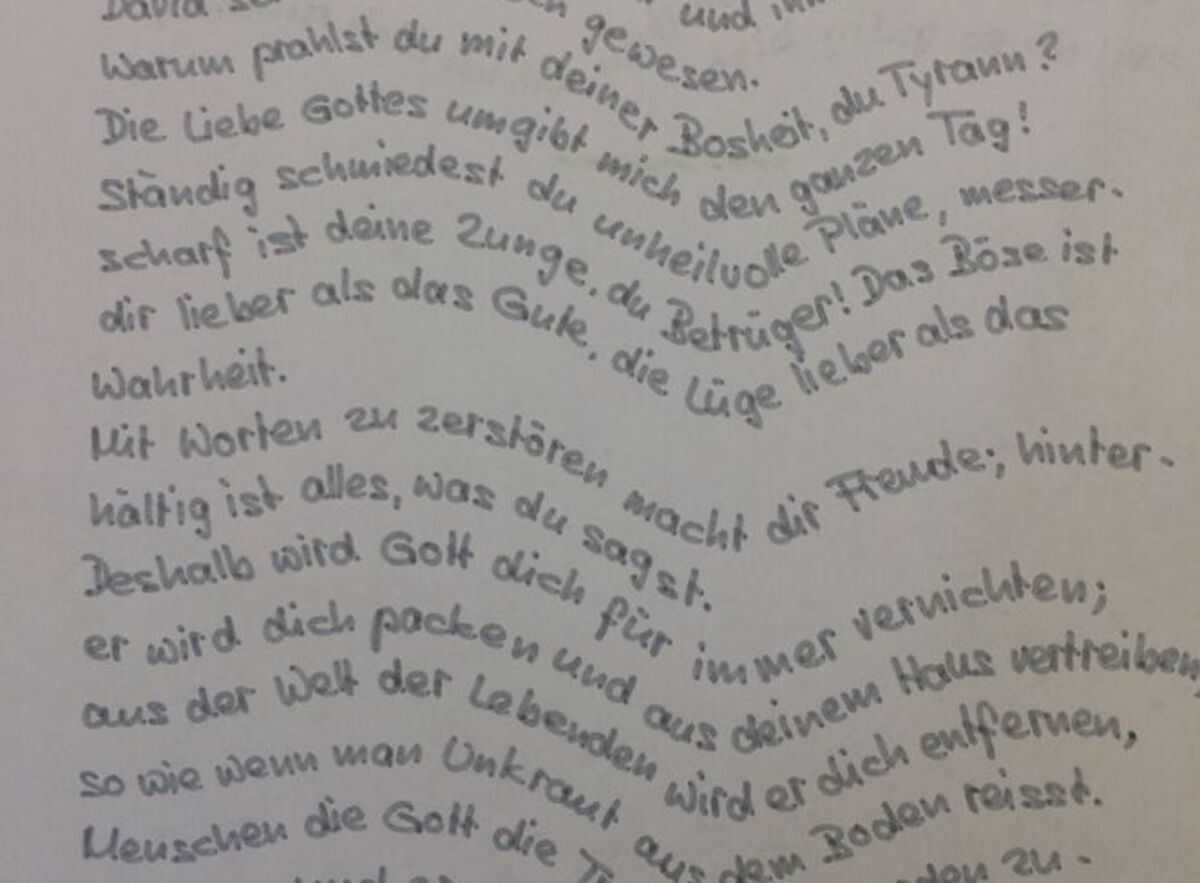 David und
gewesen.
Warum prahlst du mit deiner Bosheit, du Tyrann?
Die Liebe Gottes umgibt mich den ganzen Tag!
Ständig schmiedest du unheilvolle Pläne, messer-
scharf ist deine Zunge, du Betrüger! Das Böse ist
dir lieber als das Gute, die Lüge lieber als das
Wahrheit.
Mit Worten zu zerstören macht dir Freude; hinter-
hältig ist alles, was du sagst.
Deshalb wird Gott dich für immer vernichten;
er wird dich packen und aus deinem Haus vertreiben,
aus der Welt der Lebenden wird er dich entfernen,
so wie wenn man Unkraut aus dem Boden reisst.
Menschen die Gott die zu-
und